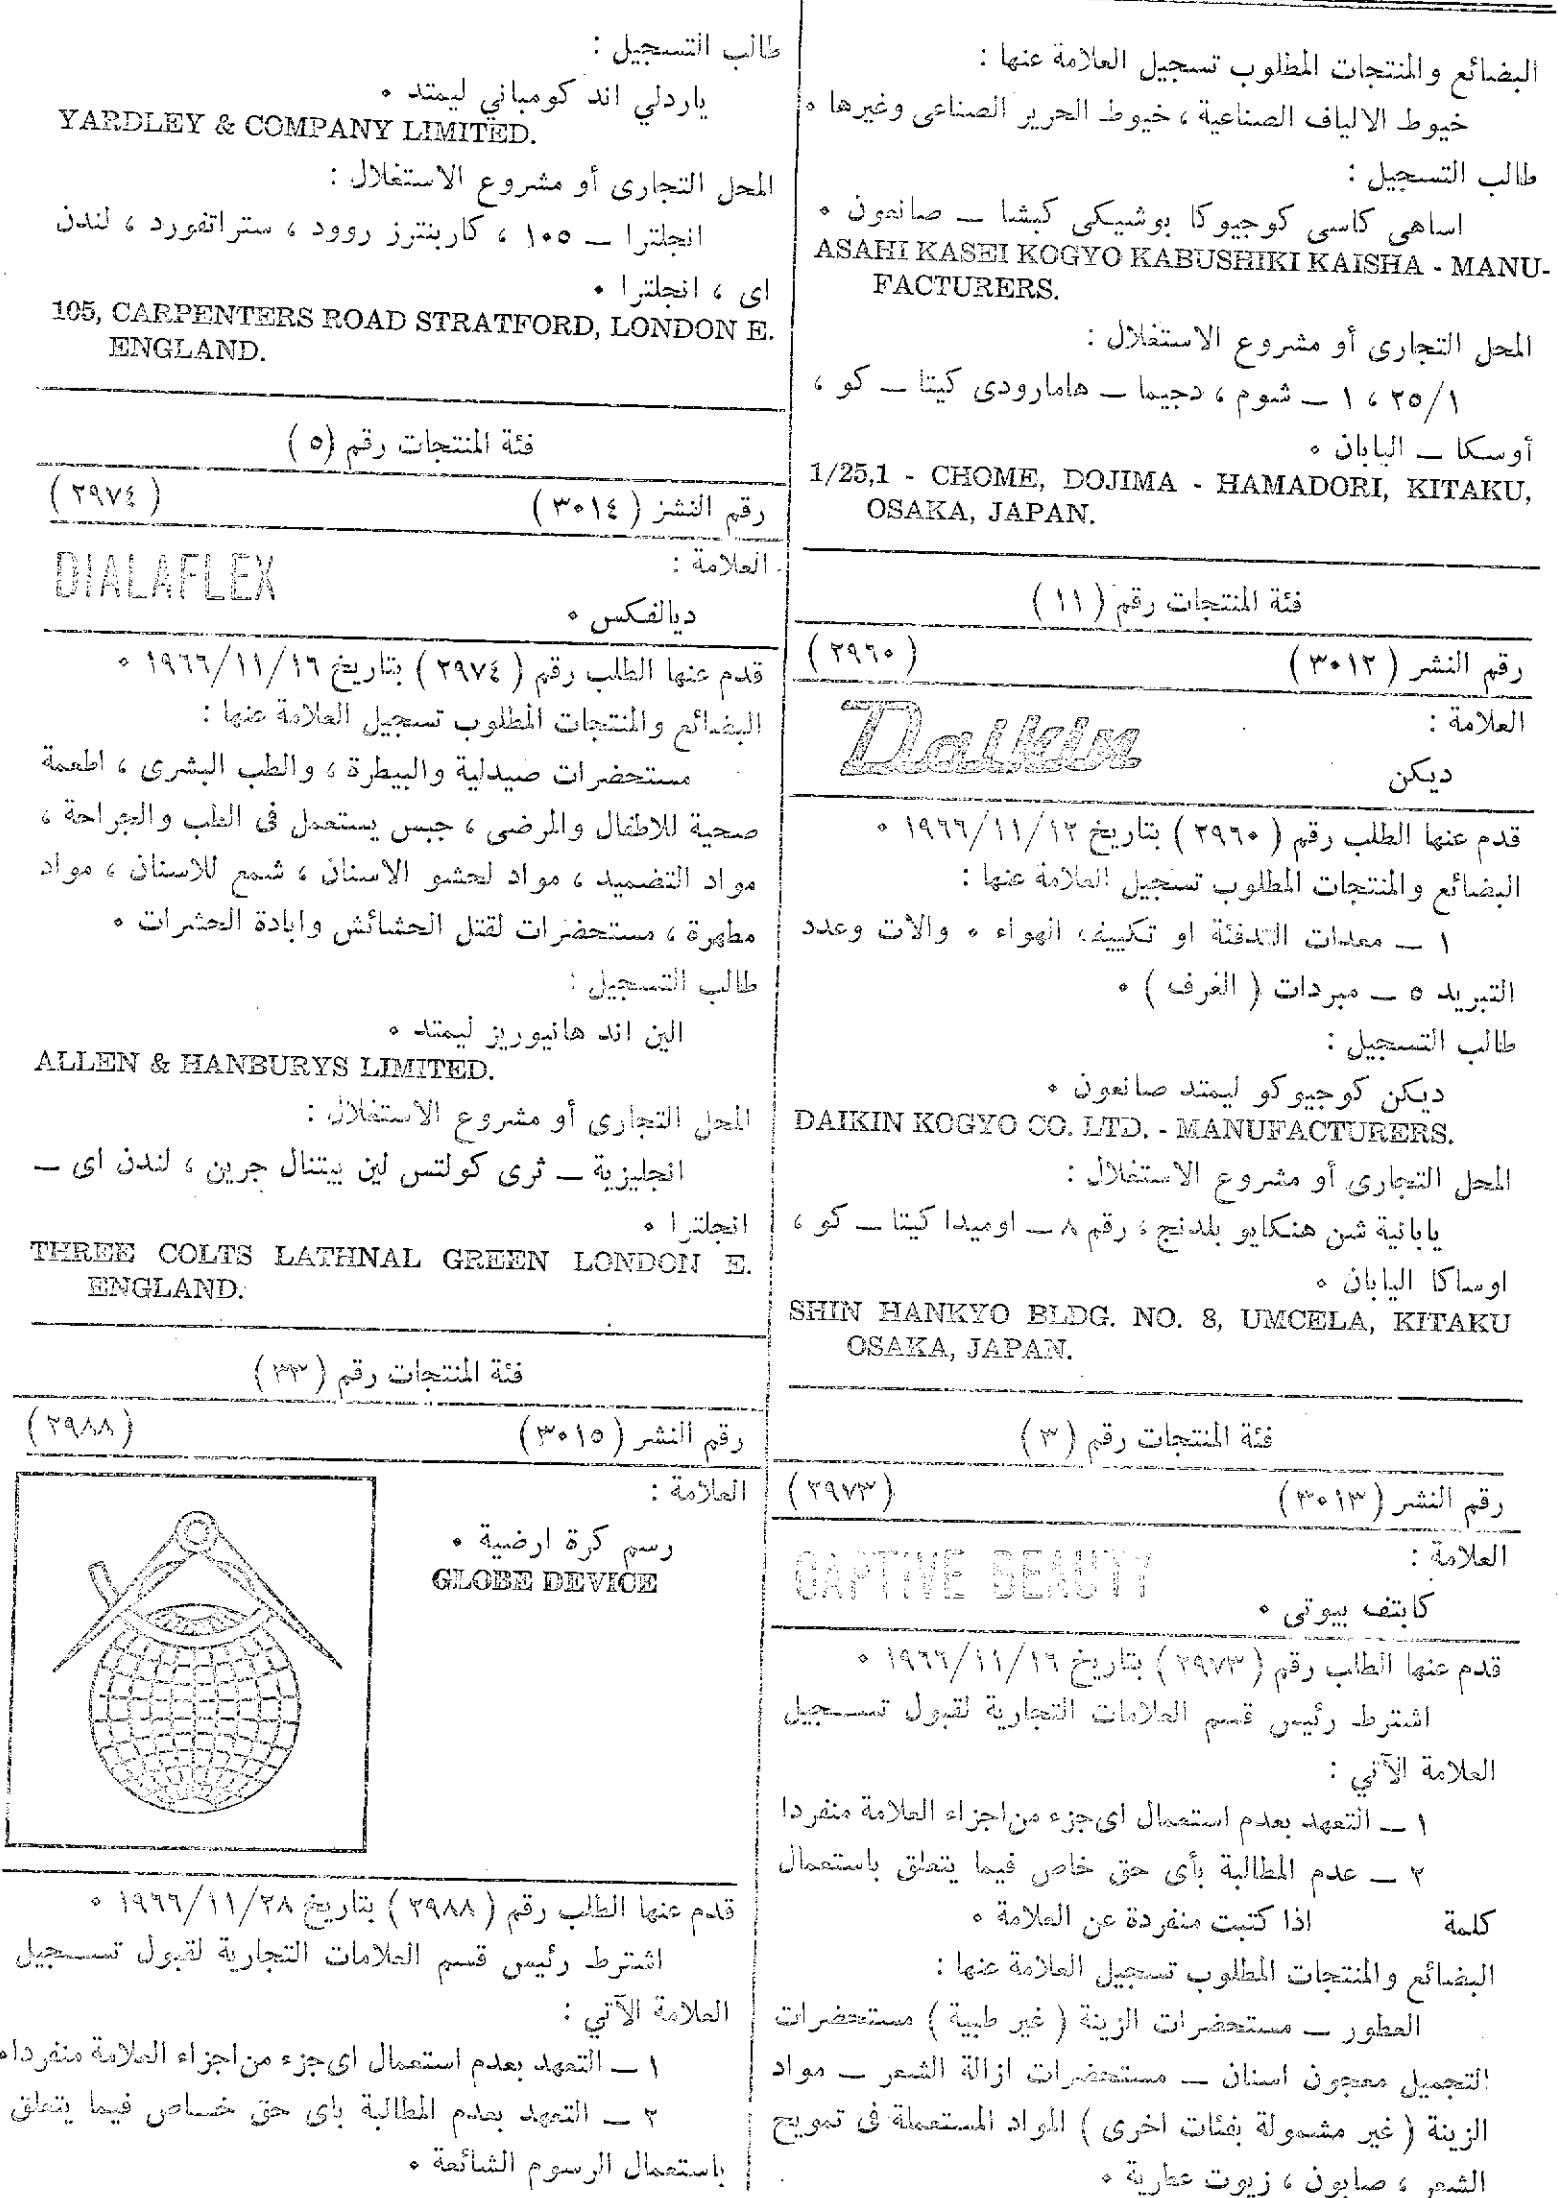 البضائع والمنتجات المطلوب تسجيل العلامة عنها :
خيوط الالياف الصناعية ، خيوط الحرير الصناعى وغيرها ٠
طالب التسجيل :
اساهى كاسى كوجيوكا بوشيكى كيشا ــ صانعون ٠
ASAHI KASEI KOGYO KABUSHIKI KAISHA - MANU-
FACTURERS.
المحل التجارى أو مشروع الاستغلال :
٢٥/١ ، ١ ــ شوم ، دجيما ــ هامارودى كيتا ــ كو ،
أوسكا ــ اليابان ٠
1/25,1 - CHOME, DOJIMA - HAMADORI, KITAKU,
OSAKA, JAPAN.
فئة المنتجات رقم ( ١١ )
رقم النشر ( ٣٠١٢ ) ( ٢٩٦٠ )
العلامة : Daikin
ديكن
قدم عنها الطلب رقم ( ٢٩٦٠ ) بتاريخ ١٩٦٦/١١/١٢ ٠
البضائع والمنتجات المطلوب تسجيل العلامة عنها :
١ ــ معدات التدفئة او تكييف الهواء ٠ والات وعدد
التبريد ٥ ــ مبردات ( الغرف ) ٠
طالب التسجيل :
ديكن كوجيوكو ليمتد صانعون ٠
DAIKIN KOGYO CO. LTD. - MANUFACTURERS.
المحل التجارى أو مشروع الاستغلال :
يابانية شن هنكايو بلدنج ، رقم ٨ ــ اوميدا كيتا ــ كو ،
اوساكا اليابان ٠
SHIN HANKYO BLDG. NO. 8, UMCELA, KITAKU
OSAKA, JAPAN.
فئة المنتجات رقم ( ٣ )
رقم النشر ( ٣٠١٣ ) ( ٢٩٧٣ )
العلامة : CAPTIVE BEAUTY
كابتف بيوتى ٠
قدم عنها الطلب رقم ( ٢٩٧٣ ) بتاريخ ١٩٦٦/١١/١٦ ٠
اشترط رئيس قسم العلامات التجارية لقبول تســجيل
العلامة الآتي :
١ ــ التعهد بعدم استعمال اى جزء من اجزاء العلامة منفردا
٢ ــ عدم المطالبة بأى حق خاص فيما يتعلق باستعمال
كلمة اذا كتبت منفردة عن العلامة ٠
البضائع والمنتجات المطلوب تسجيل العلامة عنها :
العطور ــ مستحضرات الزينة ( غير طبية ) مستحضرات
التجميل معجون اسنان ــ مستحضرات ازالة الشعر ــ مواد
الزينة ( غير مشمولة بفئات اخرى ) المواد المستعملة فى تمويج
الشعر ، صابون ، زيوت عطرية ٠
طالب التسجيل :
ياردلي اند كومباني ليمتد ٠
YARDLEY & COMPANY LIMITED.
المحل التجارى أو مشروع الاستغلال :
انجلترا ــ ١٠٥ ، كاربنترز روود ، ستراتفورد ، لندن
اى ، انجلترا ٠
105, CARPENTERS ROAD STRATFORD, LONDON E.
ENGLAND.
فئة المنتجات رقم ( ٥ )
رقم النشر ( ٣٠١٤ ) ( ٢٩٧٤ )
العلامة : DIALAFLEX
ديالفكس ٠
قدم عنها الطلب رقم ( ٢٩٧٤ ) بتاريخ ١٩٦٦/١١/١٦ ٠
البضائع والمنتجات المطلوب تسجيل العلامة عنها :
مستحضرات صيدلية والبيطرة ، والطب البشرى ، اطعمة
صحية للاطفال والمرضى ، جبس يستعمل فى الطب والجراحة ،
مواد التضميد ، مواد لحشو الاسنان ، شمع للاسنان ، مواد
مطهرة ، مستحضرات لقتل الحشائش وابادة الحشرات ٠
طالب التسجيل :
الين اند هانيوريز ليمتد ٠
ALLEN & HANBURYS LIMITED.
المحل التجارى أو مشروع الاستغلال :
انجليزية ــ ثرى كولتس لين بيتنال جرين ، لندن اى ــ
انجلترا ٠
THREE COLTS LATHNAL GREEN LONDON E.
ENGLAND.
فئة المنتجات رقم ( ٣٣ )
رقم النشر ( ٣٠١٥ ) ( ٢٩٨٨ )
العلامة :
رسم كرة ارضية ٠
GLOBE DEVICE
قدم عنها الطلب رقم ( ٢٩٨٨ ) بتاريخ ١٩٦٦/١١/٢٨ ٠
اشترط رئيس قسم العلامات التجارية لقبول تســجيل
العلامة الآتي :
١ ــ التعهد بعدم استعمال اى جزء من اجزاء العلامة منفردا٠
٢ ــ التعهد بعدم المطالبة باى حق خــاص فيما يتعلق
باستعمال الرسوم الشائعة ٠